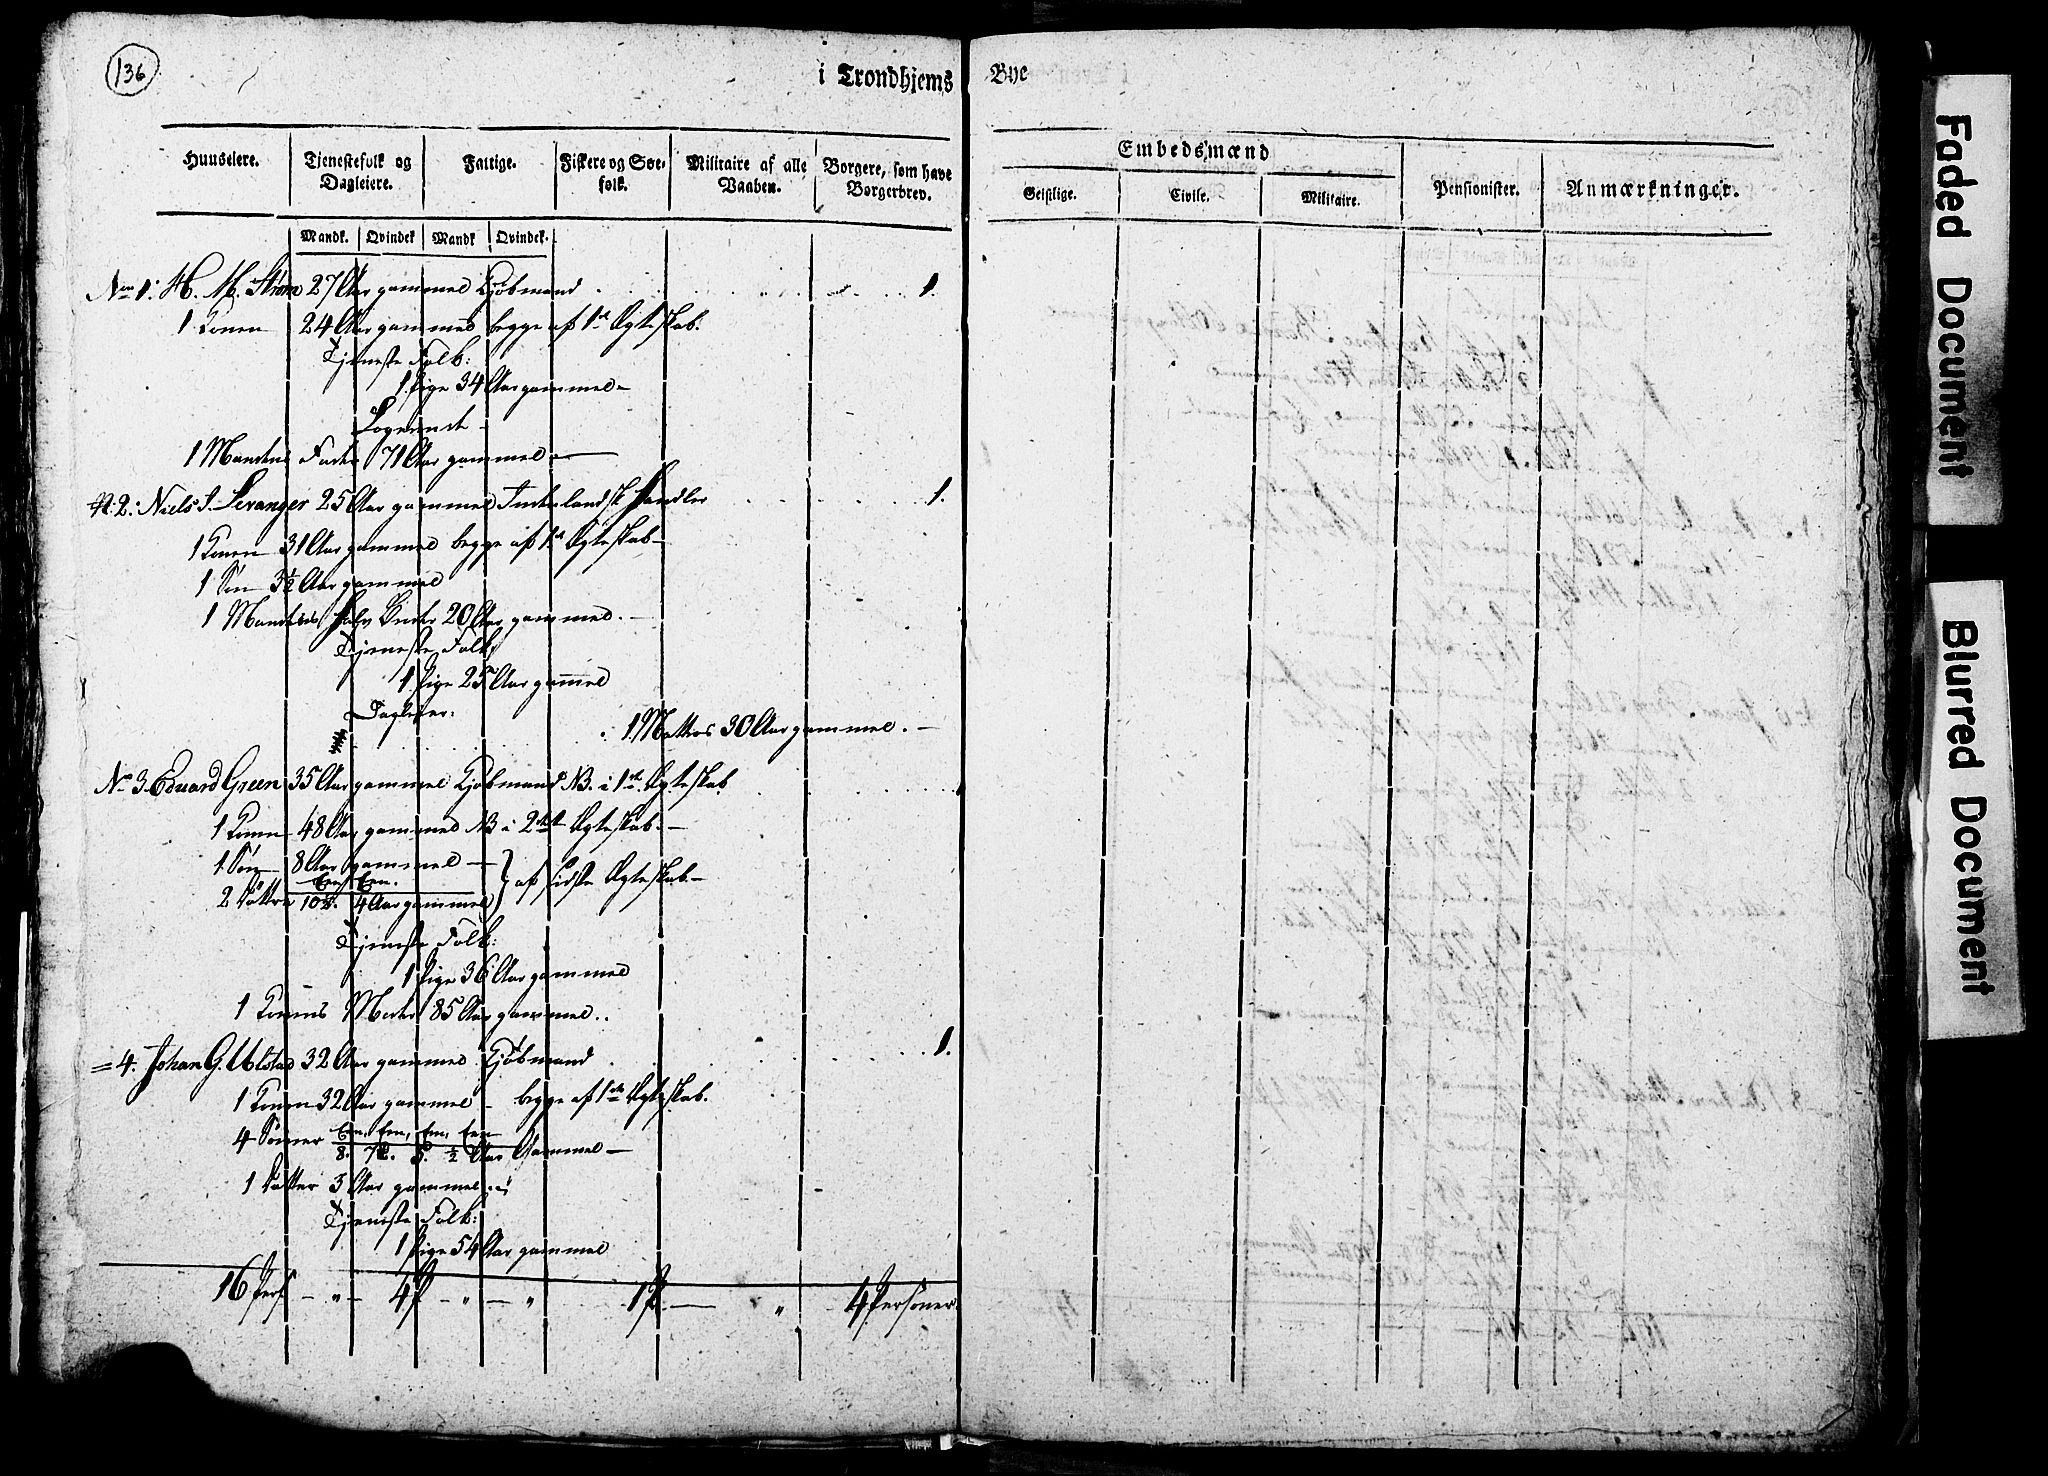 136
i Trondhjems Bye
Huuseiere. Tjenestefolk og Dagleiere. Fattige. Fiskere og Søefolk. Militaire af alle Vaaben. Borgere, som have Borgerbrev.
Embedsmænd
Geistlige. Civile. Militaire. Pensionister. Anmærkninger.
Mandk. Qvindek Mandk Qvindek.
No 1. H. M. Strøm 27 Aar gammel Kjøbmand 1.
1 Konen 24 Aar gammel begge af 1ste Ægteskab.
Tjeneste Folk:
1 Pige 34 Aar gammel
Logerende
1 Mandens Fader 71 Aar gammel
N: 2. Niels J. Levanger 25 Aar gammel Inderlandsk Handler 1.
1 Konen 31 Aar gammel begge af 1ste Ægteskab
1 Søn 3½ Aar gammel
1 Mandens Halv Broder 20 Aar gammel.
Tjeneste Folk:
1 Pige 25 Aar gammel
Dagleier.
1 Matros 30 Aar gammel.
No 3 Eduard Green 35 Aar gammel Kjøbmand NB. i 1ste Ægteskab 1
1 Konen 48 Aar gammel NB i 2det Ægteskab.
1 Søn 8 Aar gammel
Een Een.
2 Døttre 10½. 4 Aar gammel } af sidste Ægteskab
Tjeneste Folk:
1 Pige 36 Aar gammel
1 Konens Moder 85 Aar gammel..
=4. Johan G. Ulstad 32 Aar gammel Kjøbmand 1.
1 Konen 32 Aar gammel begge af 1ste Ægteskab.
4 Sønner Een, Een, Een, Een
8. 7½. 5. ½ Aar Gammel
1 Datter 3 Aar gammel
Tjeneste Folk:
1 Pige 54 Aar gammel
16 Pers — " — 4 P — " — " 1 P — " 4 Personer.
Faded Document
Blurred Document